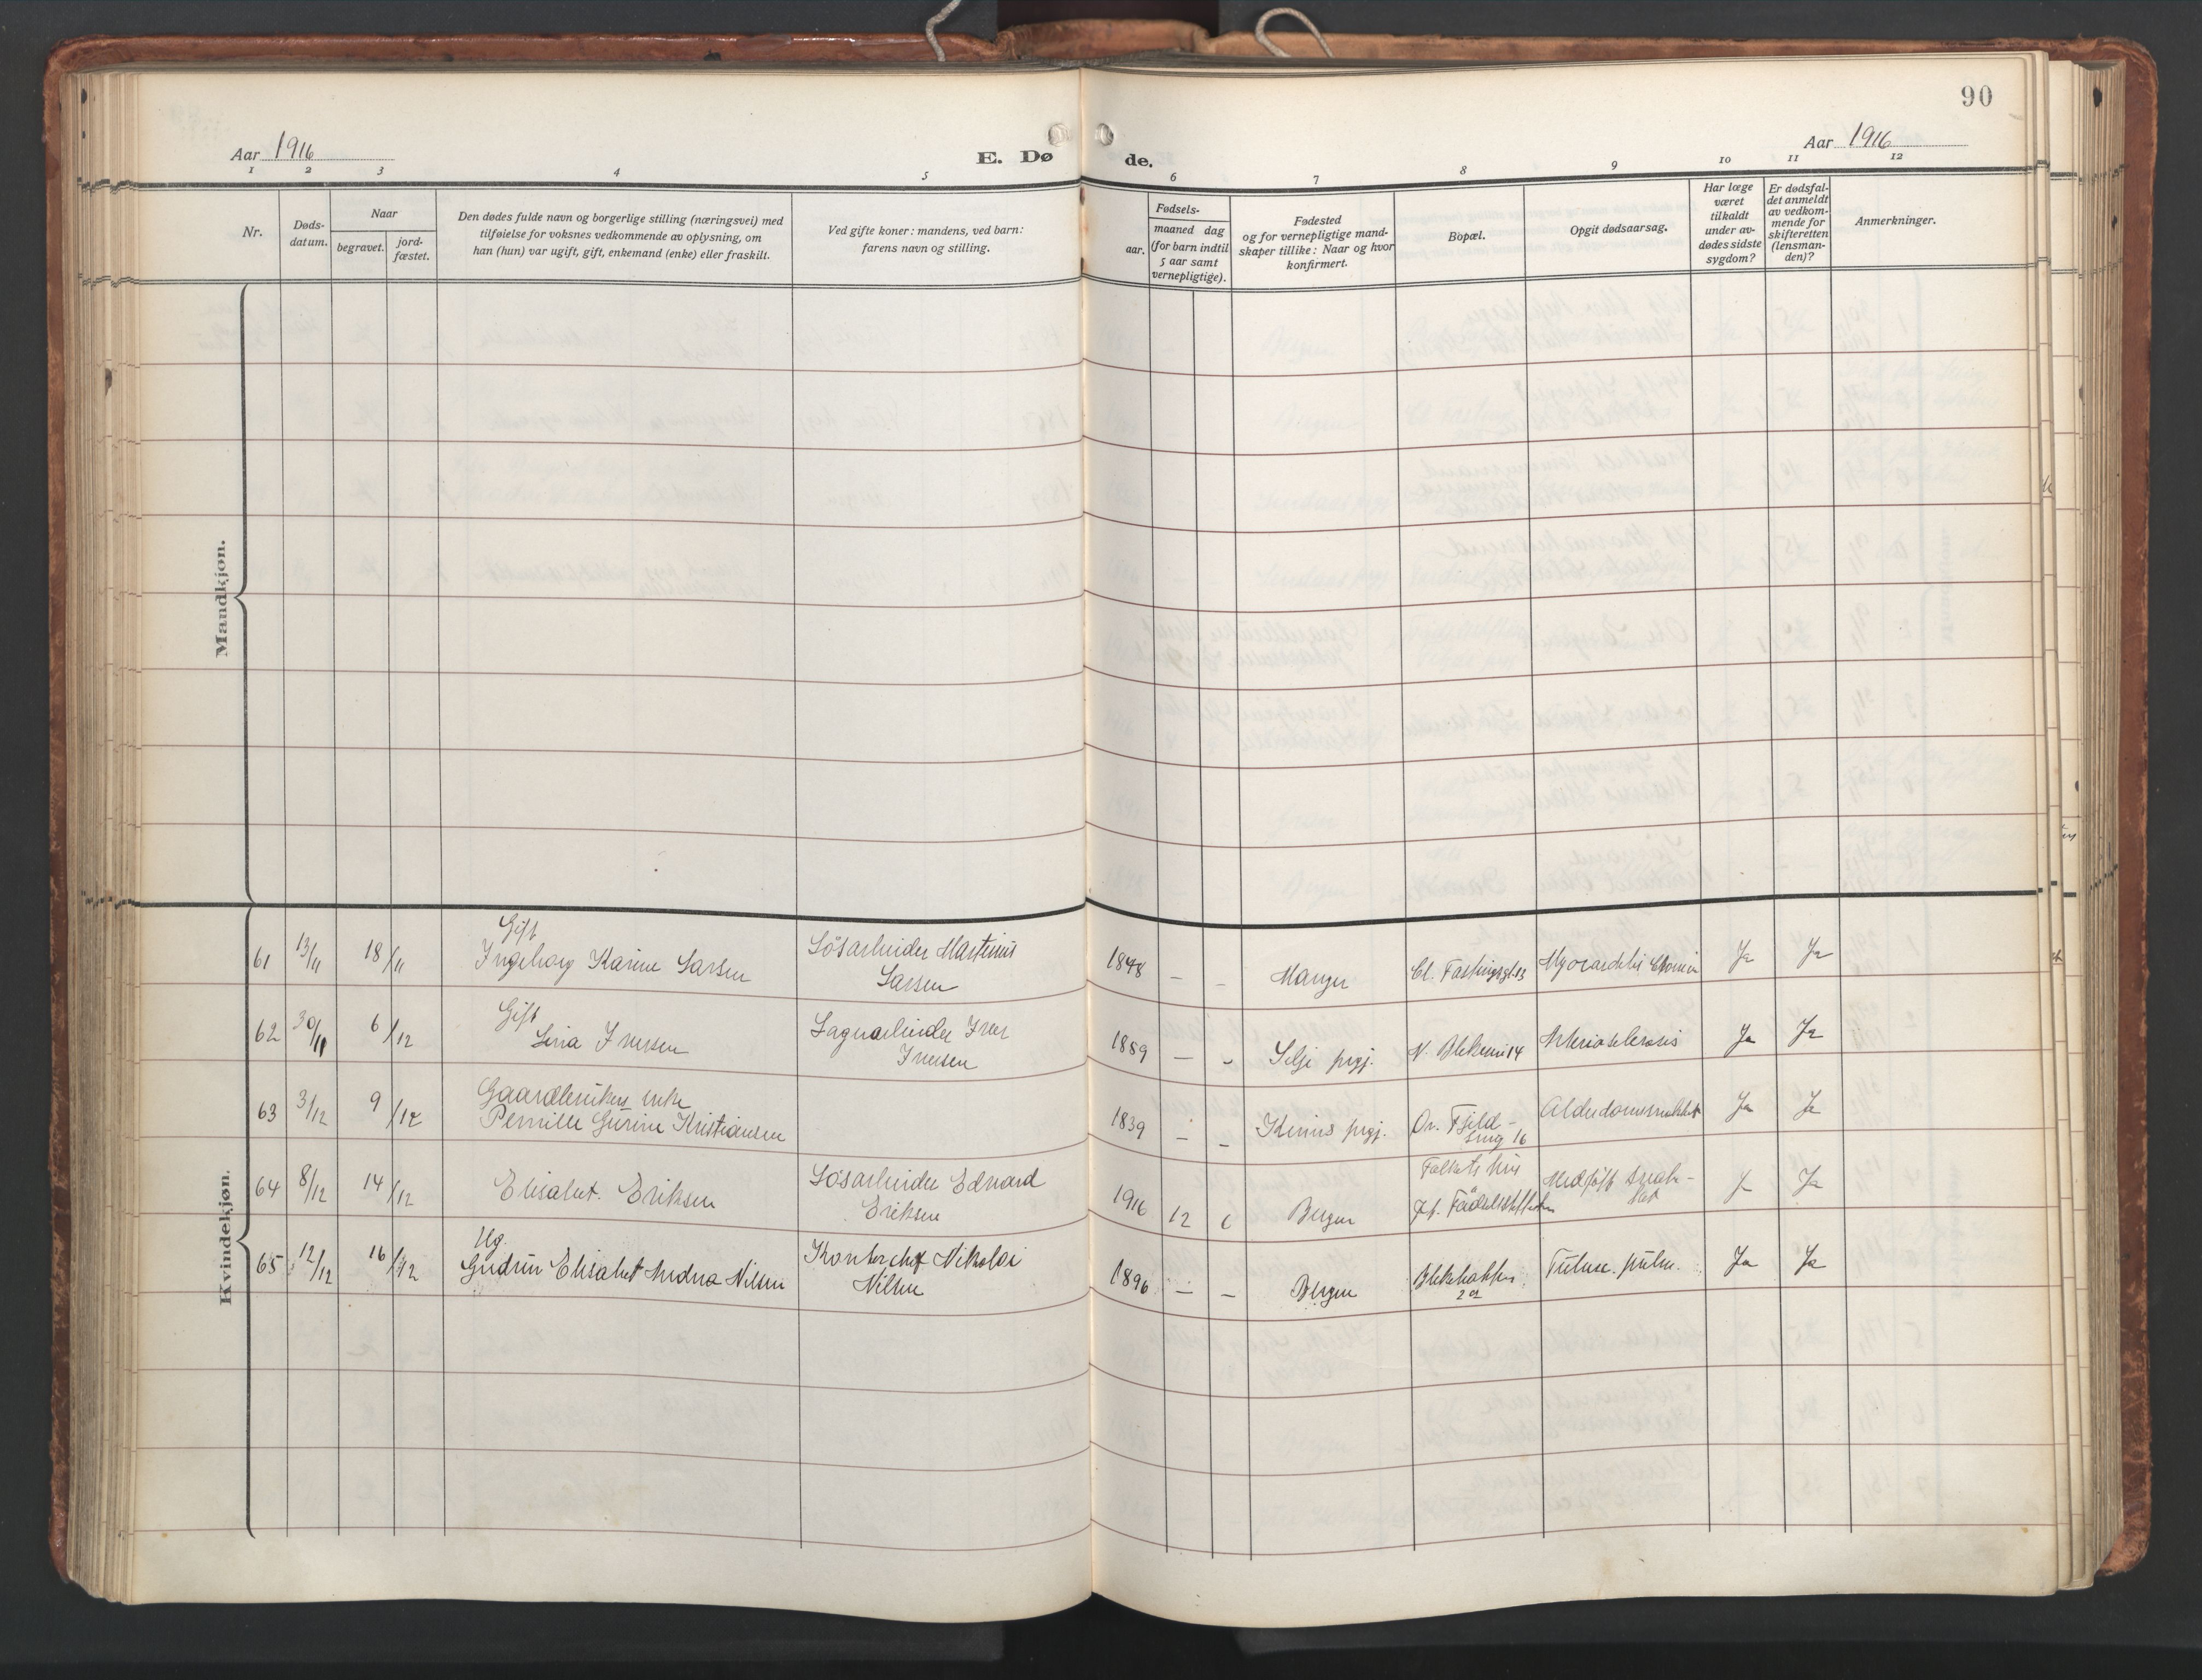 90
Aar 1916
E. Dø
de.
Aar 1916
1 2 3 4 5
6 7 8 9 10 11 12
Nr.
Døds-
datum.
Naar
begravet.
jord-
fæstet.
Den dødes fulde navn og borgerlige stilling (næringsvei) med
tilføielse for voksnes vedkommende av oplysning, om
han (hun) var ugift, gift, enkemand (enke) eller fraskilt.
Ved gifte koner: mandens, ved barn:
farens navn og stilling.
Fødsels-
aar.
maaned dag
(for barn indtil
5 aar samt
vernepligtige).
Fødested
og for vernepligtige mand-
skaper tillike: Naar og hvor
konfirmert.
Bopæl.
Opgit dødsaarsag.
Har læge
været
tilkaldt
under av-
dødes sidste
sygdom?
Er dødsfal-
det anmeldt
av vedkom-
mende for
skifteretten
(lensman-
den)?
Anmerkninger.
Mandkjøn.
Kvindekjøn.
61 13/11 18/11
Gift
Ingeborg Karine Larsen
Løsarbeider Martinus
Larsen
1848 – – Manger
Cl. Fastingsgt. 13
Myocarditis Chronica
Ja Ja
62 30/11 6/12
Gift
Lina Iversen
Lagerarbeider Iver
Iversen
1859 – – Selje prgj.
N. Blekevei 14
Arteriosclerosis
Ja Ja
63 3/12 9/12
Gaardbrukers enke
Pernille Gurine Kristiansen
1839 – – Kinns prgj.
Øv. Fjeld-
smug 16
Alderdomssvakhet
Ja Ja
64 8/12 14/12
Elisabet Eriksen
Løsarbeider Edvard
Eriksen
1916 12 6 Bergen
Folkets hus
Medfødt svak-
het
J Ja
65 12/12 16/12
Ug.
Gudrun Elisabet Andrea Nilsen
Kontorchef Nikolai
Nilsen
1896 – – Bergen
Blekebakken
2a
Tuberc. pulm.
Ja Ja